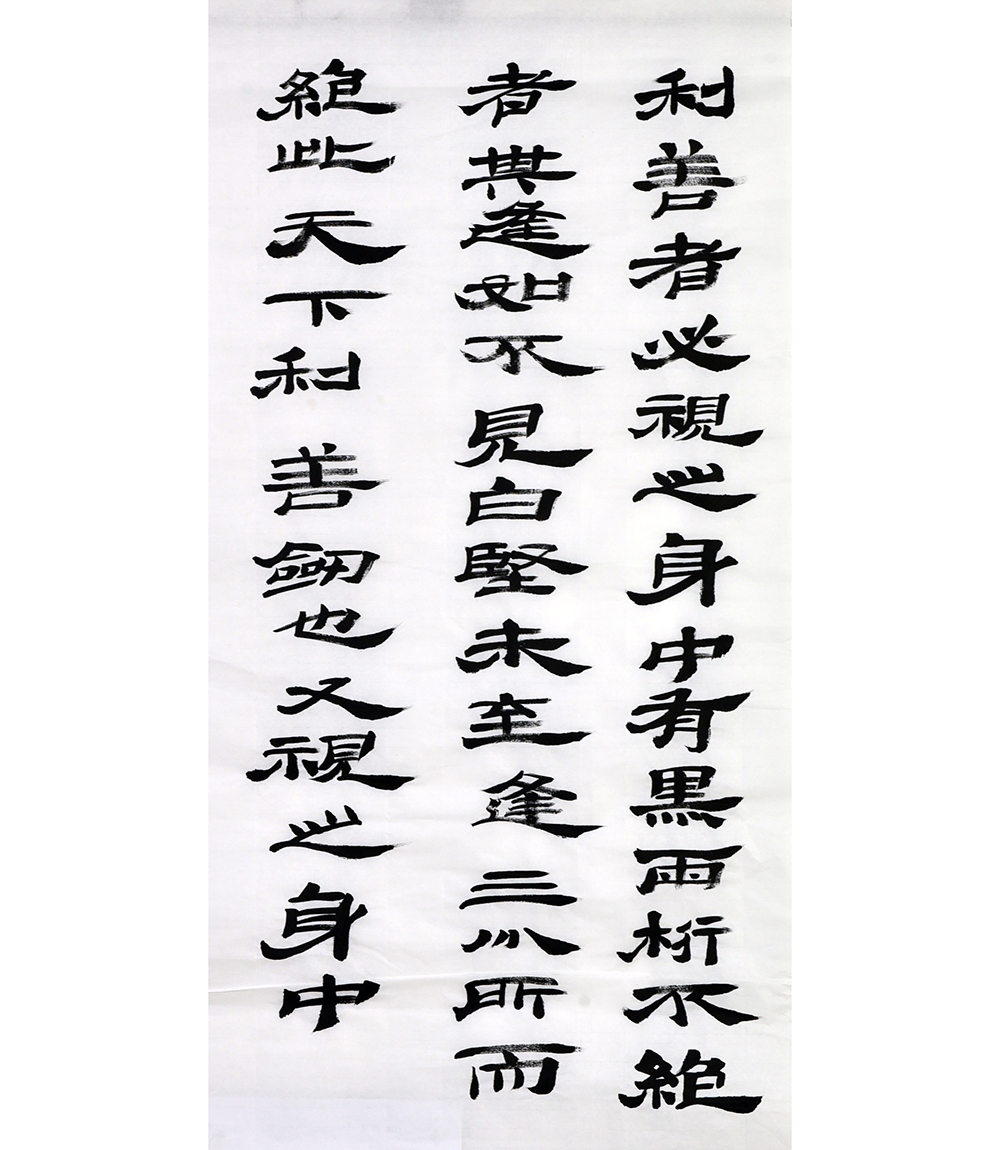 利善者必視之身中有黑兩桁不絕
者其逢如不見白堅未至逢三分所而
絕此天下利善劒也又視之身中